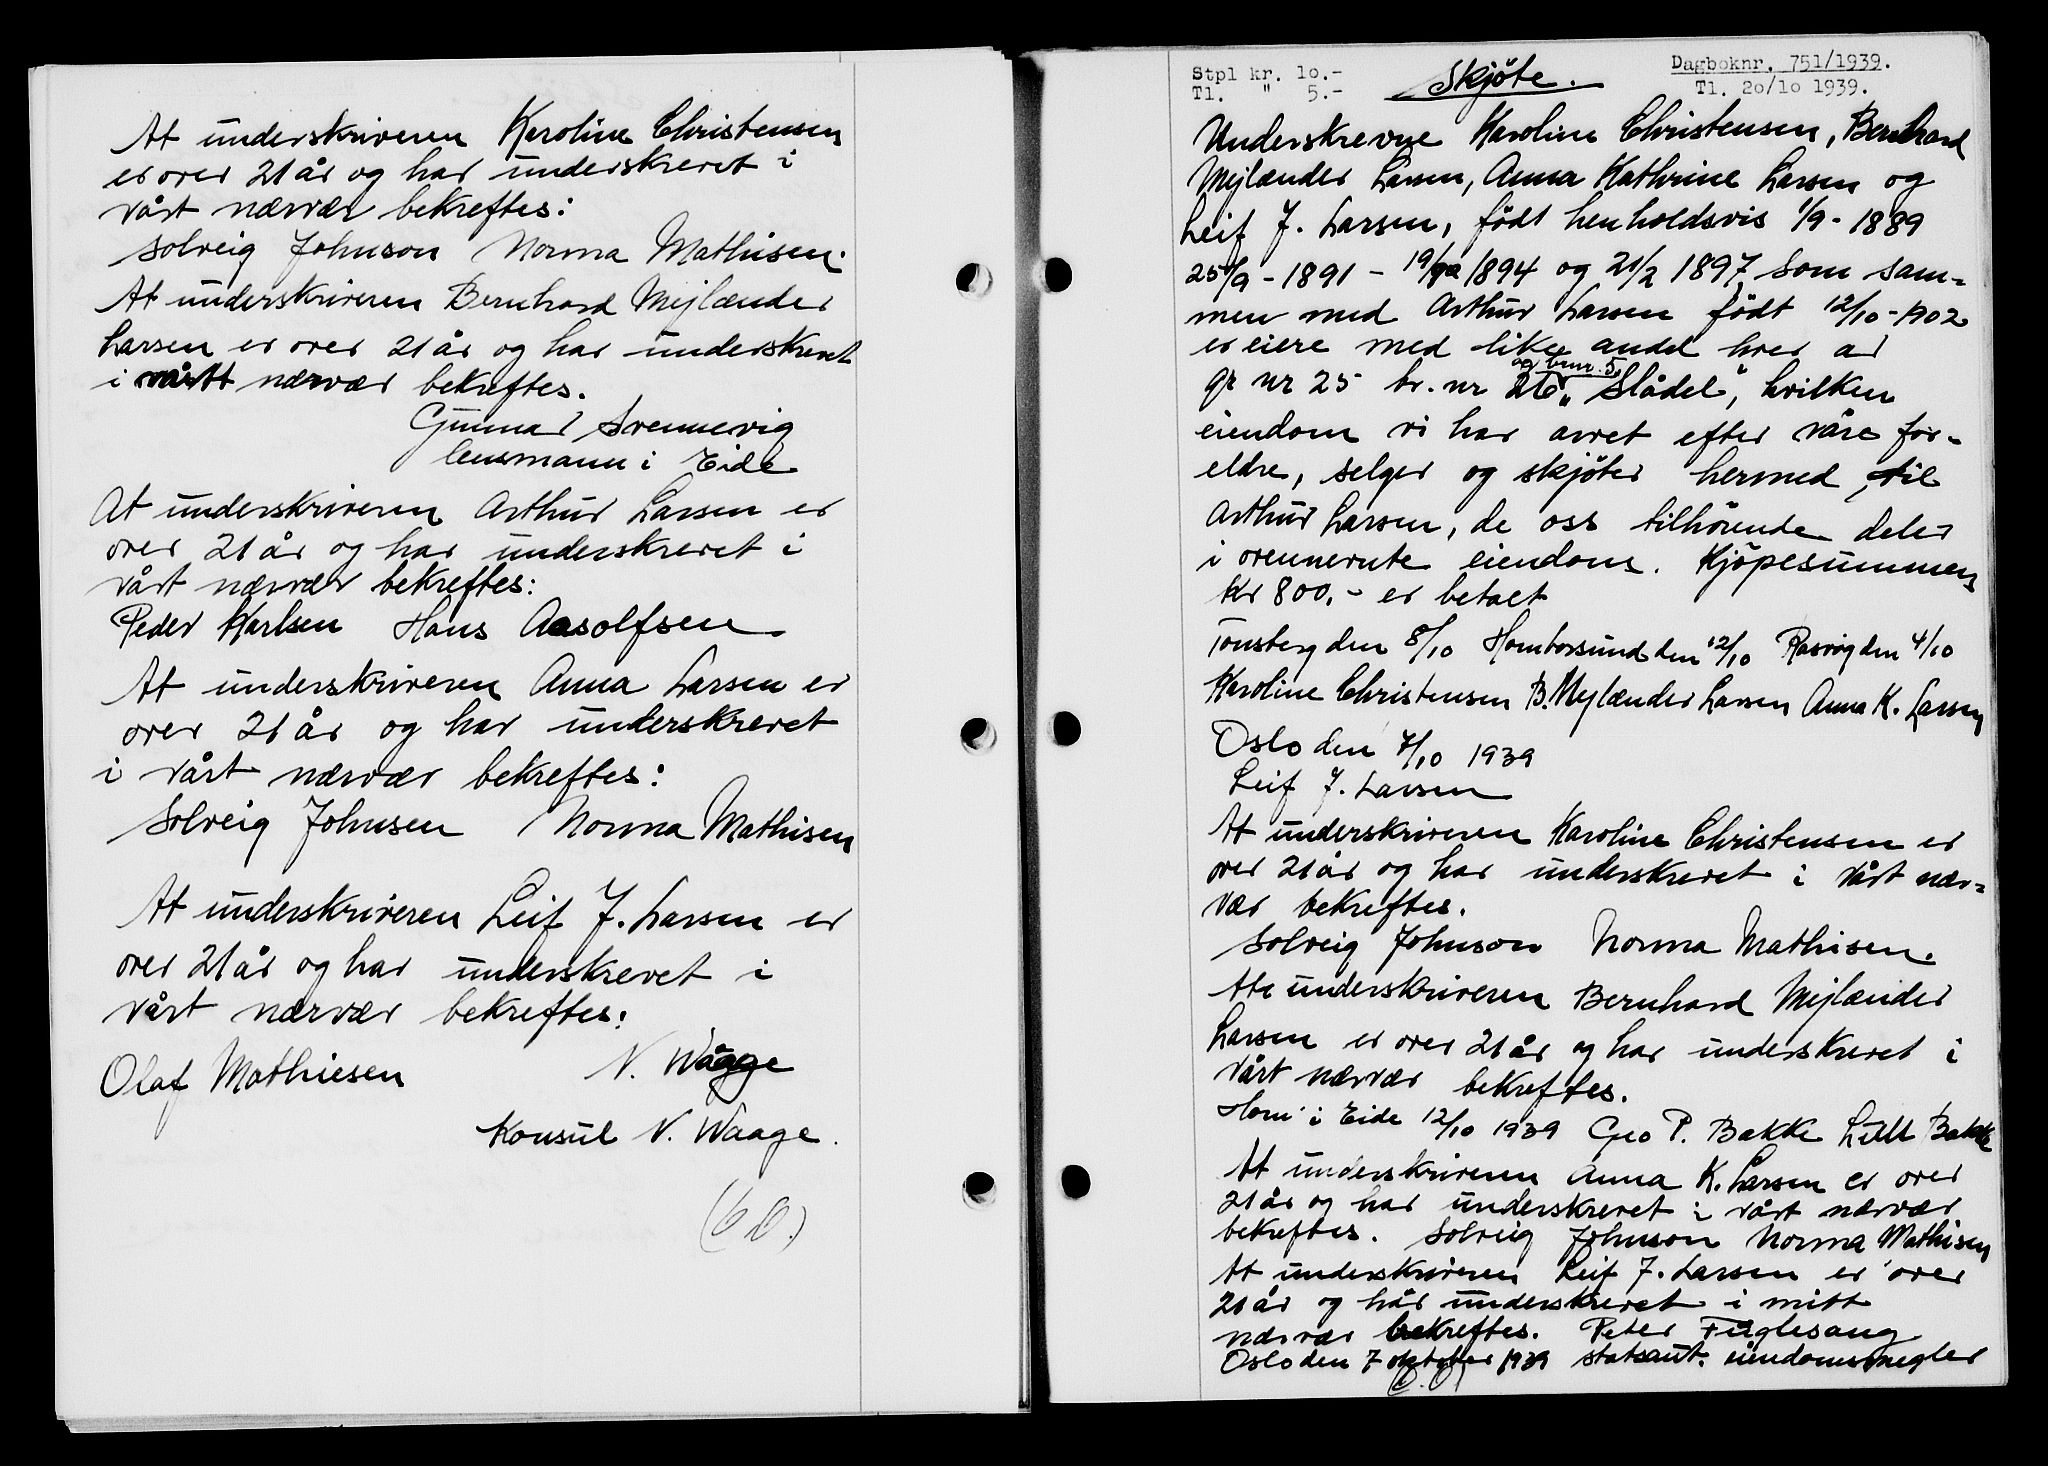 At underskriveren Karoline Christensen
er over 21 år og har underskrevet i
vårt nærvær bekreftes:
Solveig Johnson Norma Mathisen.
At underskriveren Bernhard Mejlænder
Larsen er over 21 år og har underskrevet
i vårt nærvær bekreftes.
Gunnar Svennevig
lensmann i Eide
At underskriveren Arthur Larsen er
over 21 år og har underskrevet i
vårt nærvær bekreftes:
Peder Karlsen Hans Aasolfsen.
At underskriveren Anna Larsen er
over 21 år og har underskrevet
i vårt nærvær bekreftes:
Solveig Johnsen Norma Mathisen
At underskriveren Leif J. Larsen er
over 21 år og har underskrevet i
vårt nærvær bekreftes:
Olaf Mathiesen N. Waage
Konsul N. Waage.
Stpl kr. 10.-
Tl. " 5.-
Skjöte.
Dagboknr. 751/1939.
Tl. 20/10 1939.
Underskrevne Karoline Christensen, Bernhard
Mejlænder Larsen, Anna Kathrine Larsen og
Leif J. Larsen, födt henholdsvis 1/9 - 1889
25/9 - 1891 - 19/ 1894 og 21/2 1897, som sam=
men med Arthur Larsen födt 12/10 - 1902
er eiere med like andel hver av
og bnr. 5,
gr nr 25 br. nr 26 "Slådel", hvilken
eiendom vi har arvet efter våre for-
eldre, selger og skjöter hermed, til
Arthur Larsen, de oss tilhörende deler
i ovennevnte eiendom. Kjöpesummen
Kr 800,- er betalt
Tönsberg den 8/10 Homborsund den 12/10 Rasvåg den 4/10
Karoline Christensen B. Mejlænder Larsen Anna K. Larsen
Oslo den 7/10 1939
Leif J. Larsen
At underskriveren Karoline Christensen er
over 21 år og har underskrevet i vårt nær=
vær bekreftes.
Solveig Johnson Norma Mathisen.
At underskriveren Bernhard Mejlænder
Larsen er over 21 år og har underskrevet i
vårt nærvær bekreftes.
Hom i Eide 12/10 1939 Geo P. Bakke Lilli Bakke
At underskriveren Anna K. Larsen er over
21 år og har underskrevet i vårt nærvær
bekreftes. Solveig Johnson Norma Mathisen
At underskriveren Leif J. Larsen er over
21 år og har underskrevet i mitt
nærvær bekreftes. Peter Fuglesang
Oslo den 7 oktober 1939 statsaut. eiendomsmegler